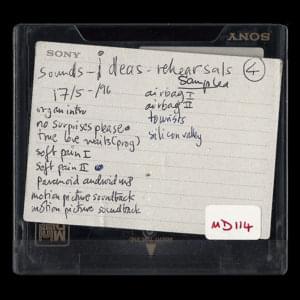 SONY
SONY
sounds-ideas-rehearsals
④
17/5-/96
organ intro
no surprises please
true love waits (prog)
soft pain I
soft pain II
paranoid android
motion picture soundtrack
motion picture soundtrack
airbag I
airbag II
tourists
silicon valley
MD114
Mini